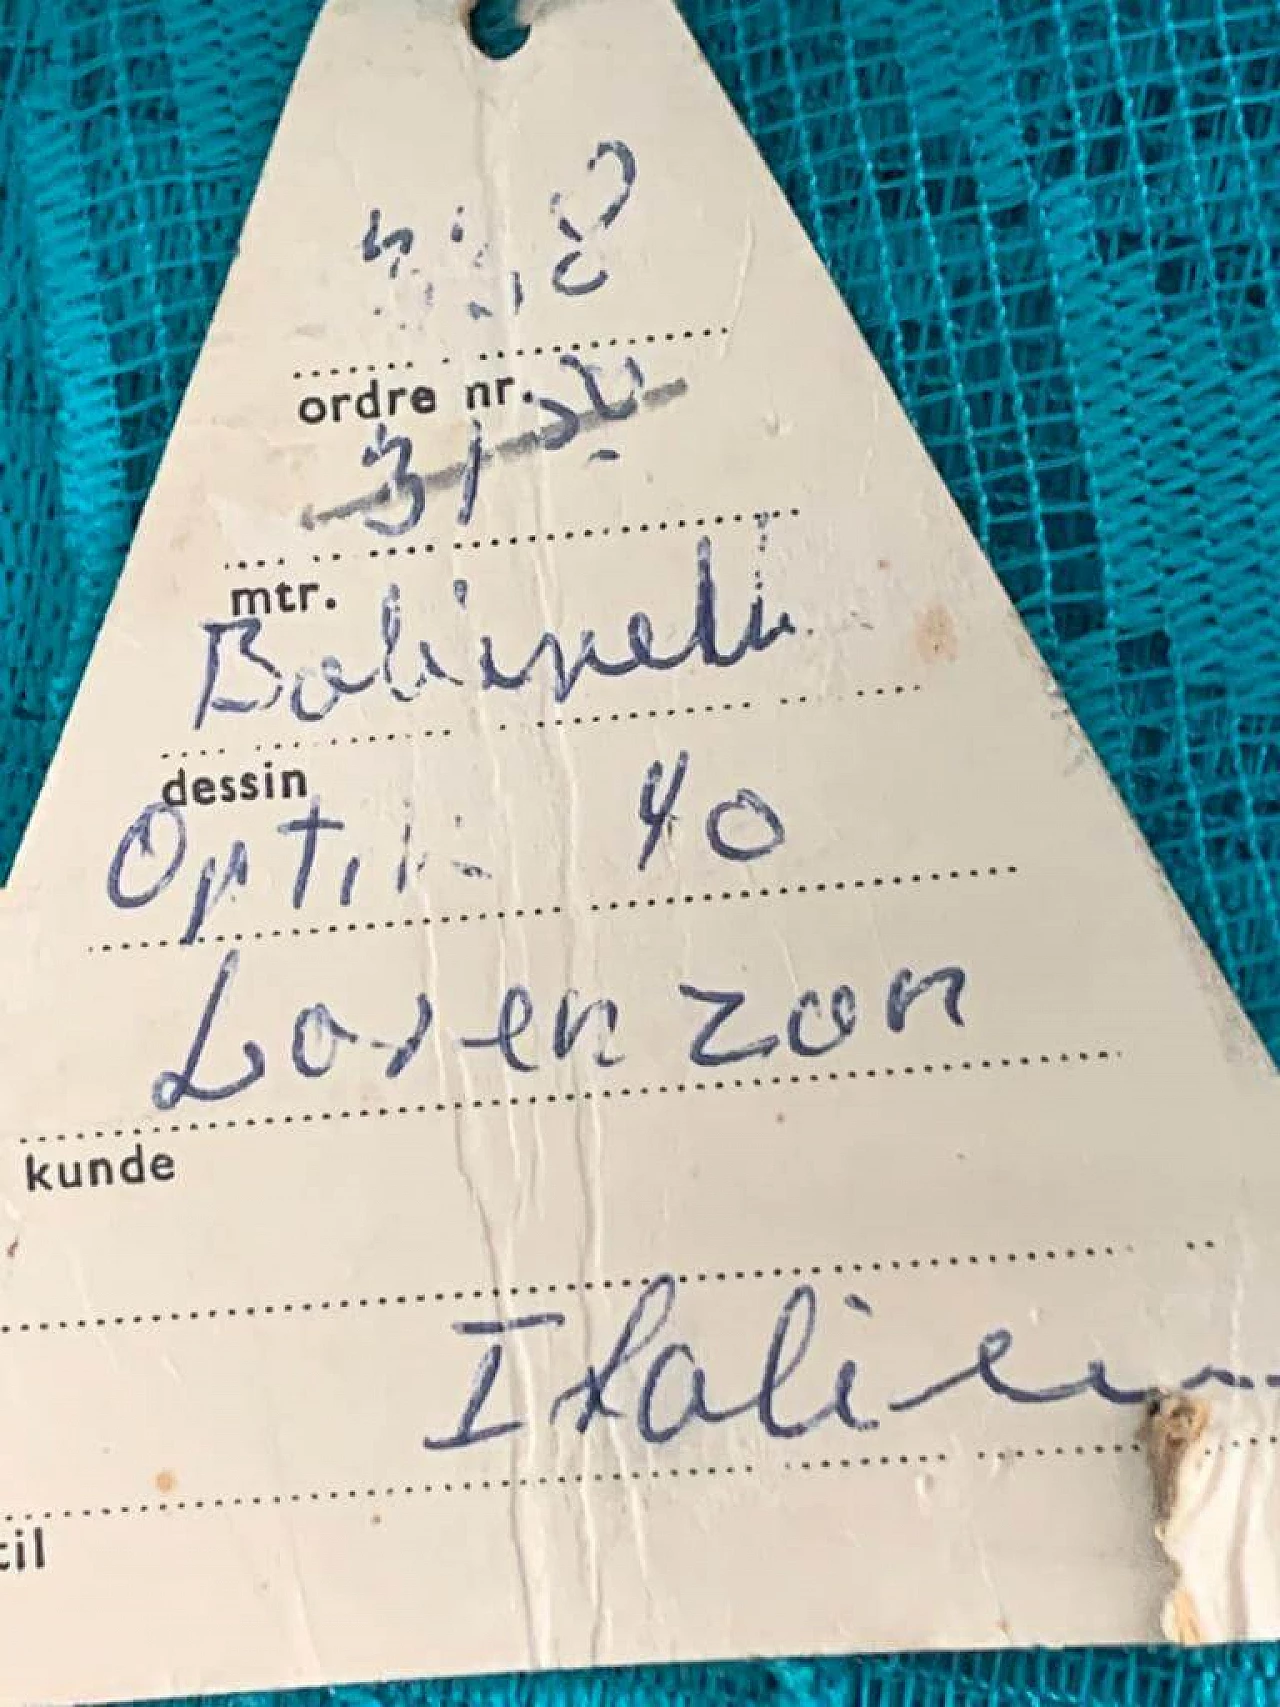 ordre nr.
31
mtr.
dessin
Optik 40
Lorenzon
kunde
Italien
til